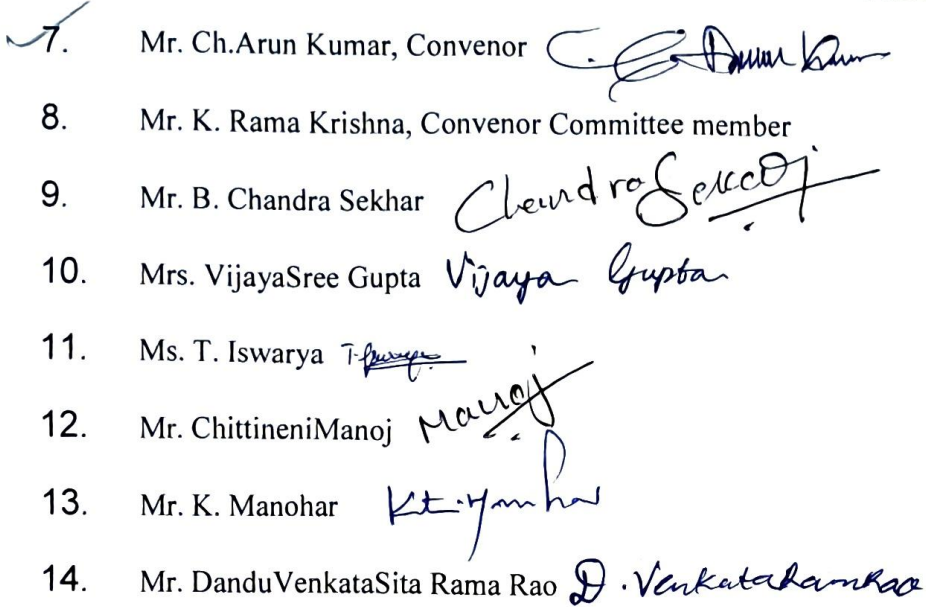 7. Mr. Ch.Arun Kumar, Convenor C. Arun Kumar
8. Mr. K. Rama Krishna, Convenor Committee member
9. Mr. B. Chandra Sekhar Chandra
10. Mrs. VijayaSree Gupta Vijaya Gupta
11. Ms. T. Iswarya
12. Mr. ChittineniManoj Manoj
13. Mr. K. Manohar
14. Mr. DanduVenkataSita Rama Rao D. VenkataRamRao